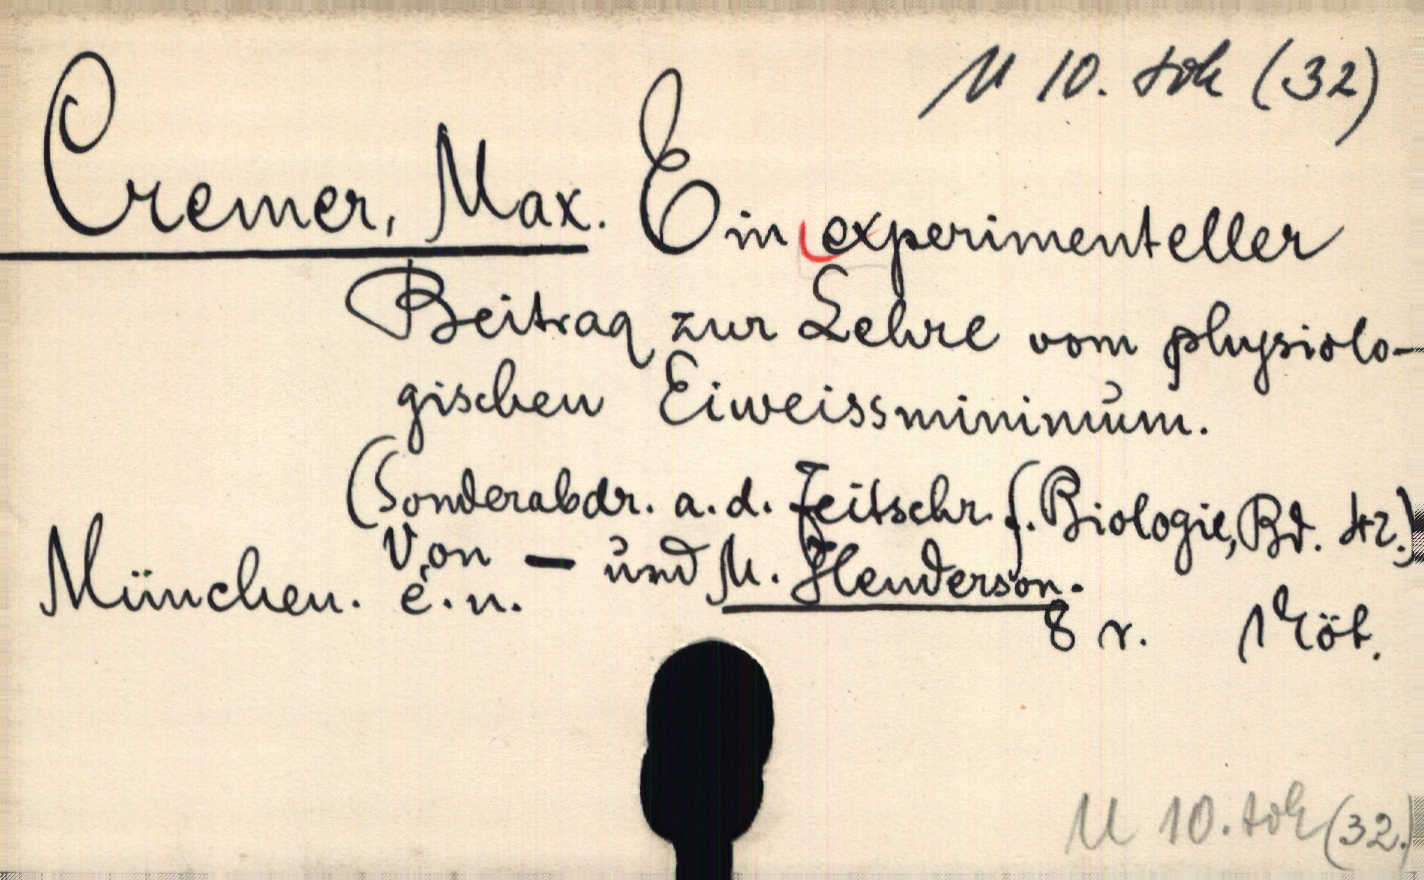 M 10. tok (32)
Cremer, Max. Ein experimenteller
Beitrag zur Lehre vom physiolo-
gischen Eiweissminimum.
(Sonderabdr. a. d. Zeitschr. f. Biologie, Bd. 42.)
Von — und M. Henderson.
München. é. n.
8 r. 1 Köt.
M 10. tok (32.)